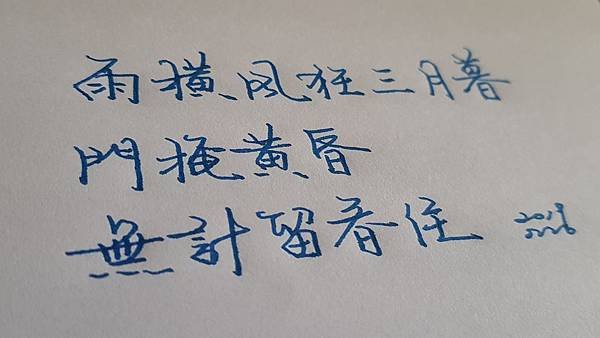 雨橫風狂三月暮
門掩黃昏
無計留春住